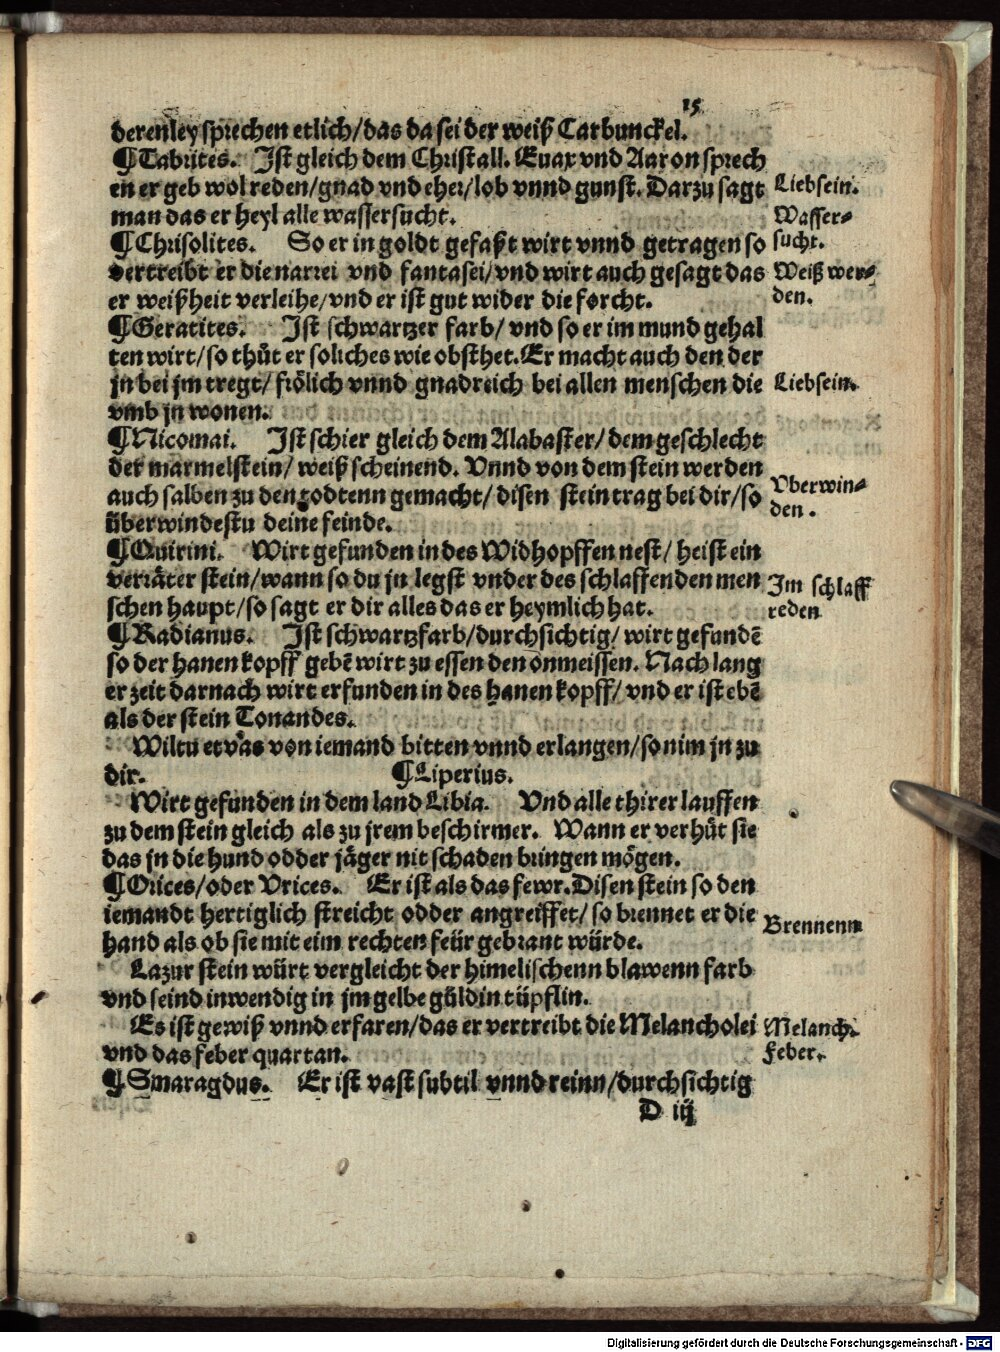 15
derenley sprechen etlich/das da sei der weiß Carbunckel.
¶Tabrites. Ist gleich dem Christall. Euax vnd Aaron sprech
en er geb wol reden/gnad vnd eher/lob vnnd gunst. Darzu sagt
Liebsein.
man das er heyl alle wassersucht.
Wasser⸗
sucht.
¶Chrisolites. So er in goldt gefaßt wirt vnnd getragen so
vertreibt er die narrei vnd fantasei/vnd wirt auch gesagt das
Weiß wer⸗
den.
er weißheit verleihe/vnd er ist gut wider die forcht.
¶Geratites. Ist schwartzer farb/vnd so er im mund gehal
ten wirt/so thůt er soliches wie obsthet. Er macht auch den der
jn bei jm tregt/frölich vnnd gnadreich bei allen menschen die
Liebsein.
vmb jn wonen.
¶Nicomai. Ist schier gleich dem Alabaster/dem geschlecht
der marmelstein/weiß scheinend. Vnnd von dem stein werden
auch salben zu den todtenn gemacht/disen stein trag bei dir/so
Vberwin⸗
den.
überwindestu deine feinde.
¶Quirini. Wirt gefunden in des Widhopffen nest/heist ein
verräter stein/wann so du jn legst vnder des schlaffenden men
Im schlaff
reden
schen haupt/so sagt er dir alles das er heymlich hat.
¶Radianus. Ist schwartzfarb/durchsichtig/wirt gefundē
so der hanen kopff gebē wirt zu essen den onmeissen. Nach lang
er zeit darnach wirt erfunden in des hanen kopff/vnd er ist ebē
als der stein Tonandes.
Wiltu etwas von iemand bitten vnnd erlangen/so nim jn zu
dir. ¶Liperius.
Wirt gefunden in dem land Libia. Vnd alle thirer lauffen
zu dem stein gleich als zu jrem beschirmer. Wann er verhüt sie
das jn die hund odder jäger nit schaden bringen mögen.
¶Orices/oder Vrices. Er ist als das fewr. Disen stein so den
iemandt hertiglich streicht odder angreiffet/so brennet er die
Brennenn
hand als ob sie mit eim rechten feür gebrant würde.
Lazur stein würt vergleicht der himelischenn blawenn farb
vnd seind inwendig in jm gelbe güldin tüpflin.
Es ist gewiß vnnd erfaren/das er vertreibt die Melancholei
Melanch.
Feber.
vnd das feber quartan.
¶Smaragdus. Er ist vast subtil vnnd reinn/durchsichtig
D iij
Digitalisierung gefördert durch die Deutsche Forschungsgemeinschaft - DFG